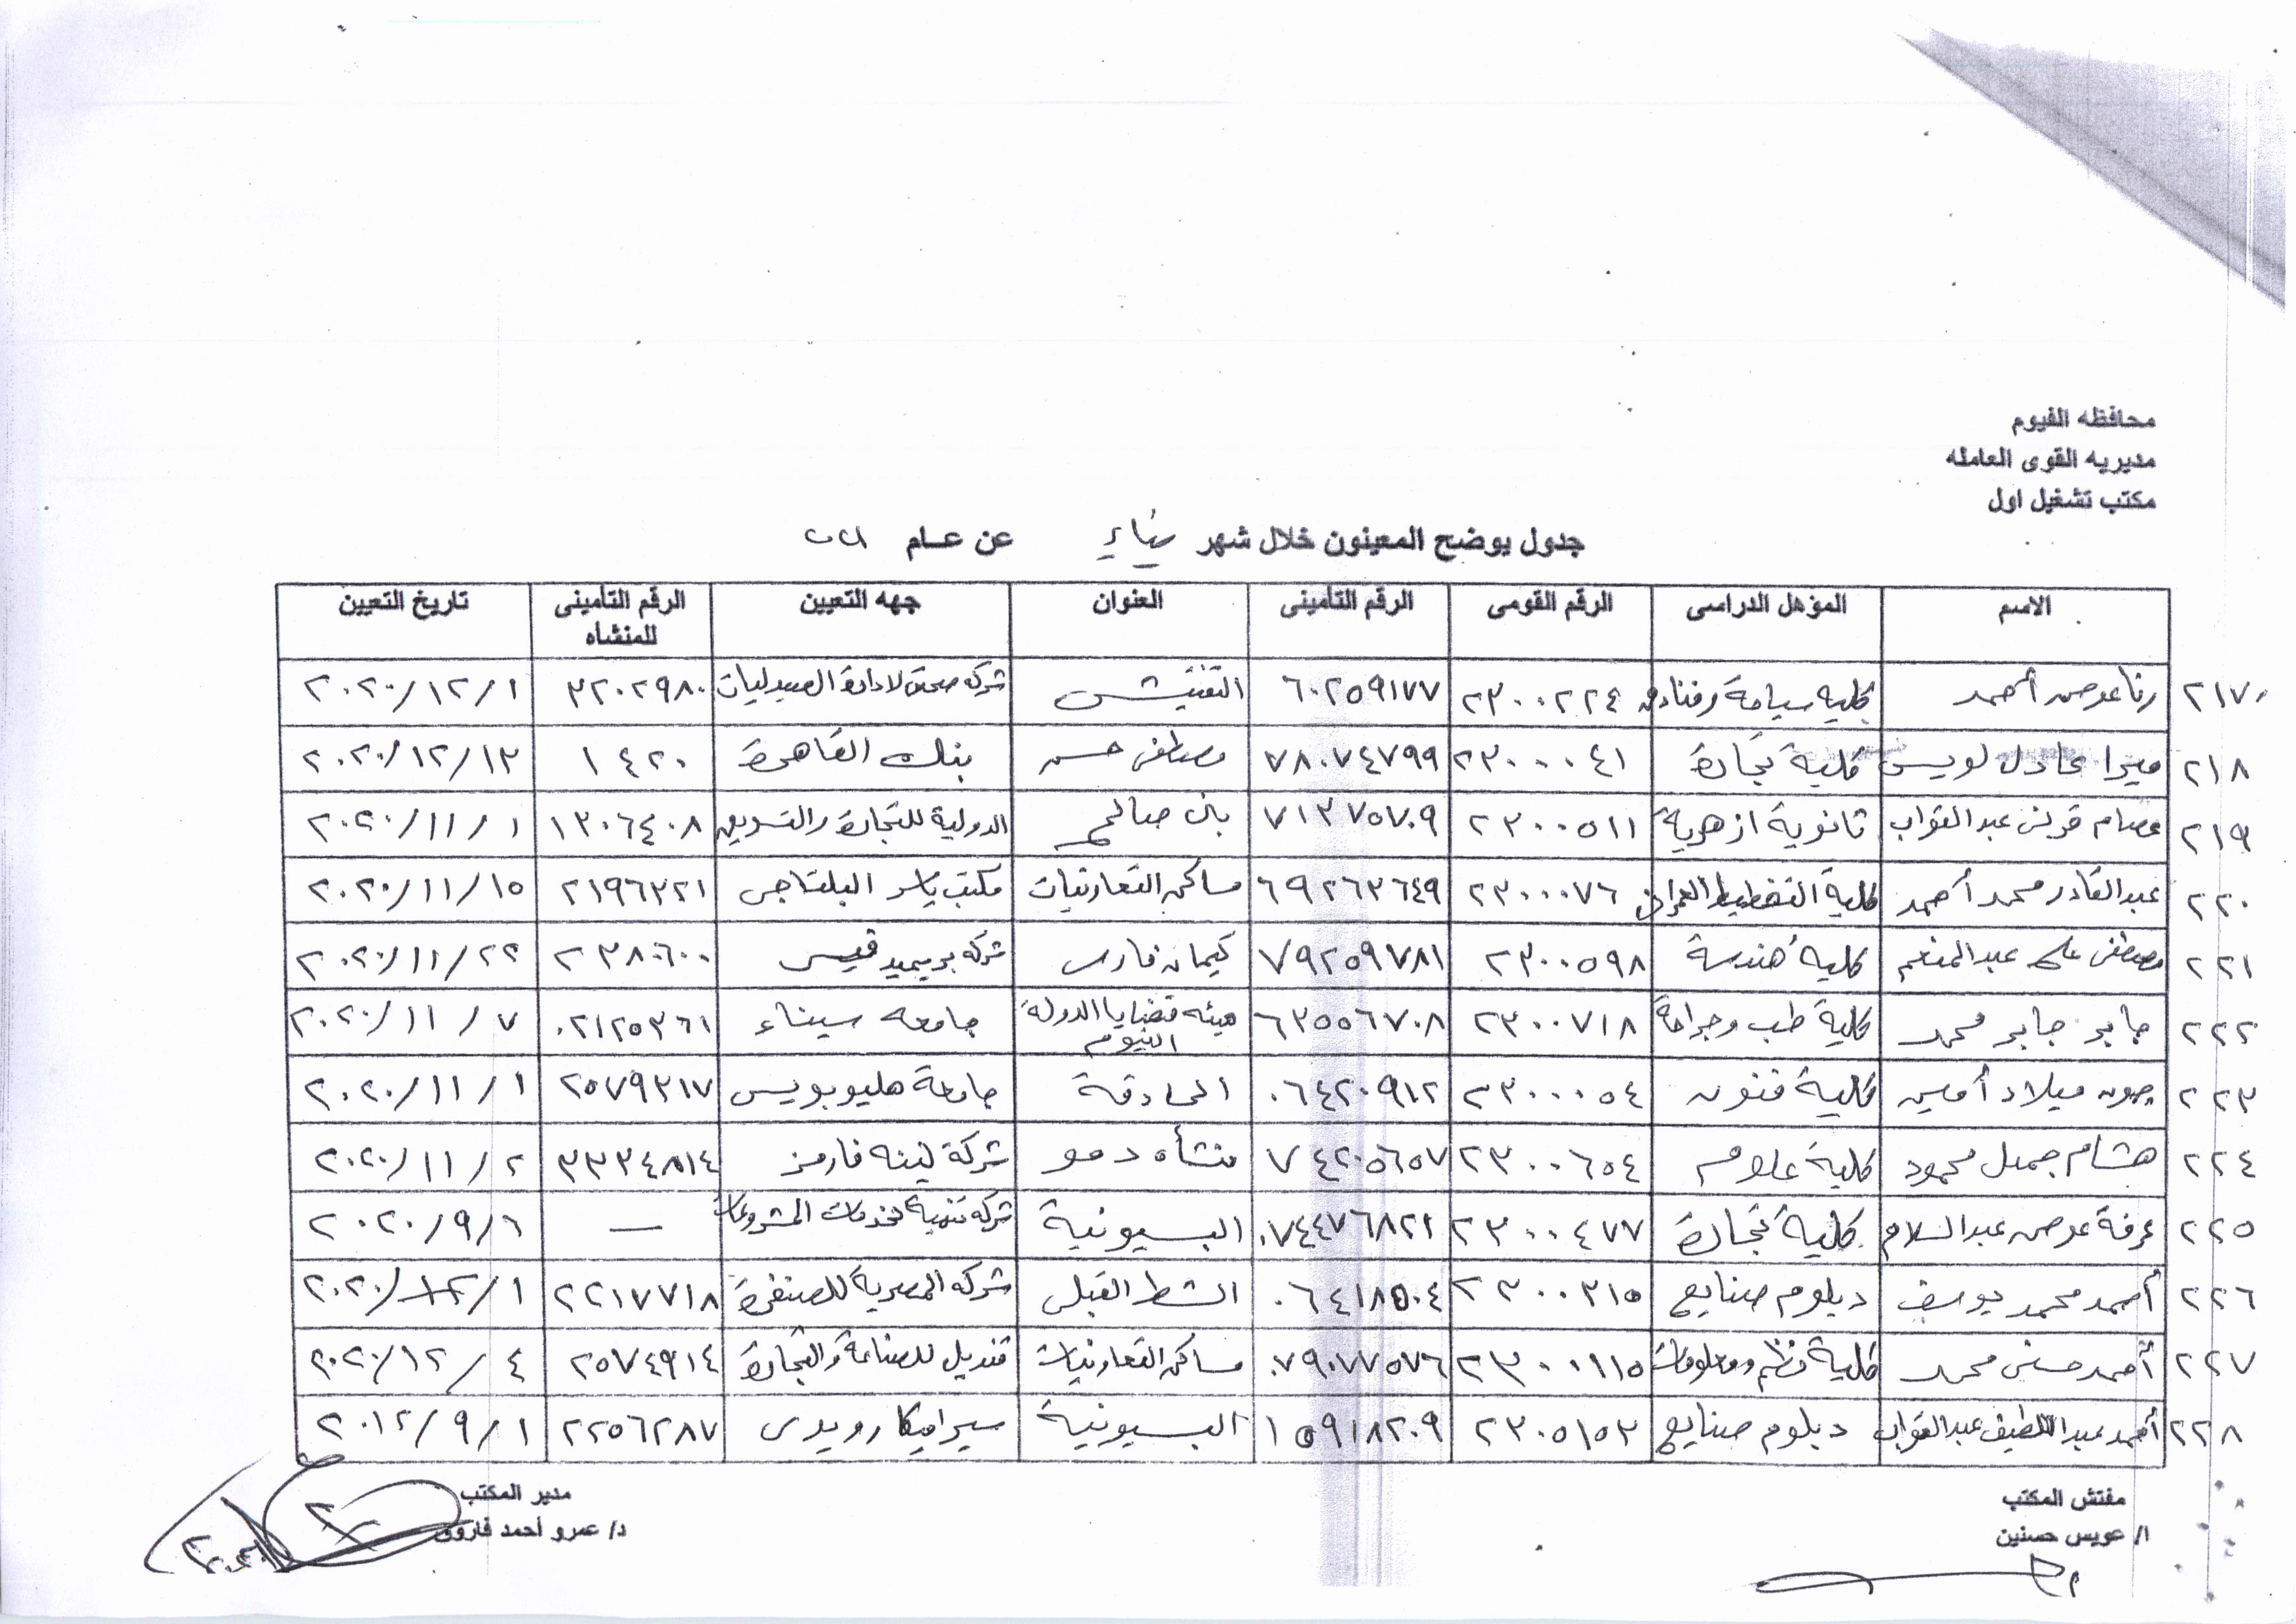 محافظه الفيوم
مديريه القوى العامله
مكتب تشغيل اول
جدول يوضح المعينون خلال شهر يناير عن عام ٢٠٢١
الاسم المؤهل الدراسى الرقم القومى الرقم التأمينى العنوان جهه التعيين الرقم التأمينى للمنشاه تاريخ التعيين
٢١٧ رنا عوض أحمد كلية سياحة وفنادق ٢٣٠٠٢٢٤ ٦٠٢٥٩١٧٧ التفتيش شركه صحتى لادارة الصيدليات ٣٢٠٢٩٨٠ ٢٠٢٠/١٢/١
٢١٨ ميرا عادل لويس كلية تجارة ٢٣٠٠٠٤١ ٧٨٠٧٤٧٩٩ مصطفى حسن بنك القاهرة ١٤٢٠ ٢٠٢٠/١٢/١٣
٢١٩ عصام قرنى عبد التواب ثانوية ازهرية ٢٣٠٠٥١١ ٧١٣٧٥٧٠٩ صالح الدولية للتجارة والتسويق ١٣٠٦٤٠٨ ٢٠٢٠/١١/١
٢٢٠ عبدالقادر محمد أحمد كلية التخطيط العمرانى ٢٣٠٠٠٧٦ ٦٩٢٦٣٦٤٩ مساكن التعاونيات مكتب ياسر البلتاجى ٢١٩٦٣٢١ ٢٠٢٠/١١/١٥
٢٢١ مصطفى على عبد المنعم كلية هندسة ٢٣٠٠٥٩٨ ٧٩٢٥٩٧٨١ كيمان فارس شركه بريميد فيس ٢٣٨٠٦٠٠ ٢٠٢٠/١١/٢٢
٢٢٢ جابر جابر محمد كلية طب وجراحة ٢٣٠٠٧١٨ ٦٣٥٥٦٧٠٨ هيئه قضايا الدولة الفيوم جامعه سيناء ٠٢١٢٥٣٦١ ٢٠٢٠/١١/٧
٢٢٣ جون ميلاد أمين كلية فنون ٢٣٠٠٠٥٤ ٠٦٤٢٠٩١٢ الحادقة جامعة هليوبويس ٢٥٧٩٣١٧ ٢٠٢٠/١١/١
٢٢٤ هشام جميل محمود كلية علوم ٢٣٠٠٦٥٤ ٧٤٢٠٥٦٥٧ منشأه دمو شركة لينه فارمز ٣٣٣٤٨١٤ ٢٠٢٠/١١/٢
٢٢٥ عرفة عوض عبدالسلام كلية تجارة ٢٣٠٠٤٧٧ ٠٧٤٤٧٦٨٢١ البسيونية شركة تنمية لخدمات المشروعات — ٢٠٢٠/٩/٦
٢٢٦ أحمد محمد يوسف دبلوم صنايع ٢٣٠٠٣١٥ ٠٦٤١٨٥٠٤ الشط القبلى شركه المصرية ٢٢١٧٧١٨ ٢٠٢٠/١٢/١
٢٢٧ أحمد حسنى محمد كلية نظم ومعلومات ٢٣٠٠١١٥ ٠٧٩٠٧٧٥٧٦ مساكن التعاونيات قنديل للصناعة والتجارة ٢٥٧٤٩١٤ ٢٠٢٠/١٢/٤
٢٢٨ أحمد عبد اللطيف عبد التواب دبلوم صنايع ٢٣٠٥١٥٣ ١٥٩١٨٢٠٩ البسيونية سيراميكا رويدى ٢٢٥٦٢٨٧ ٢٠١٢/٩/١
مفتش المكتب مدير المكتب
ا/ عويس حسنين د/ عمرو أحمد فاروق